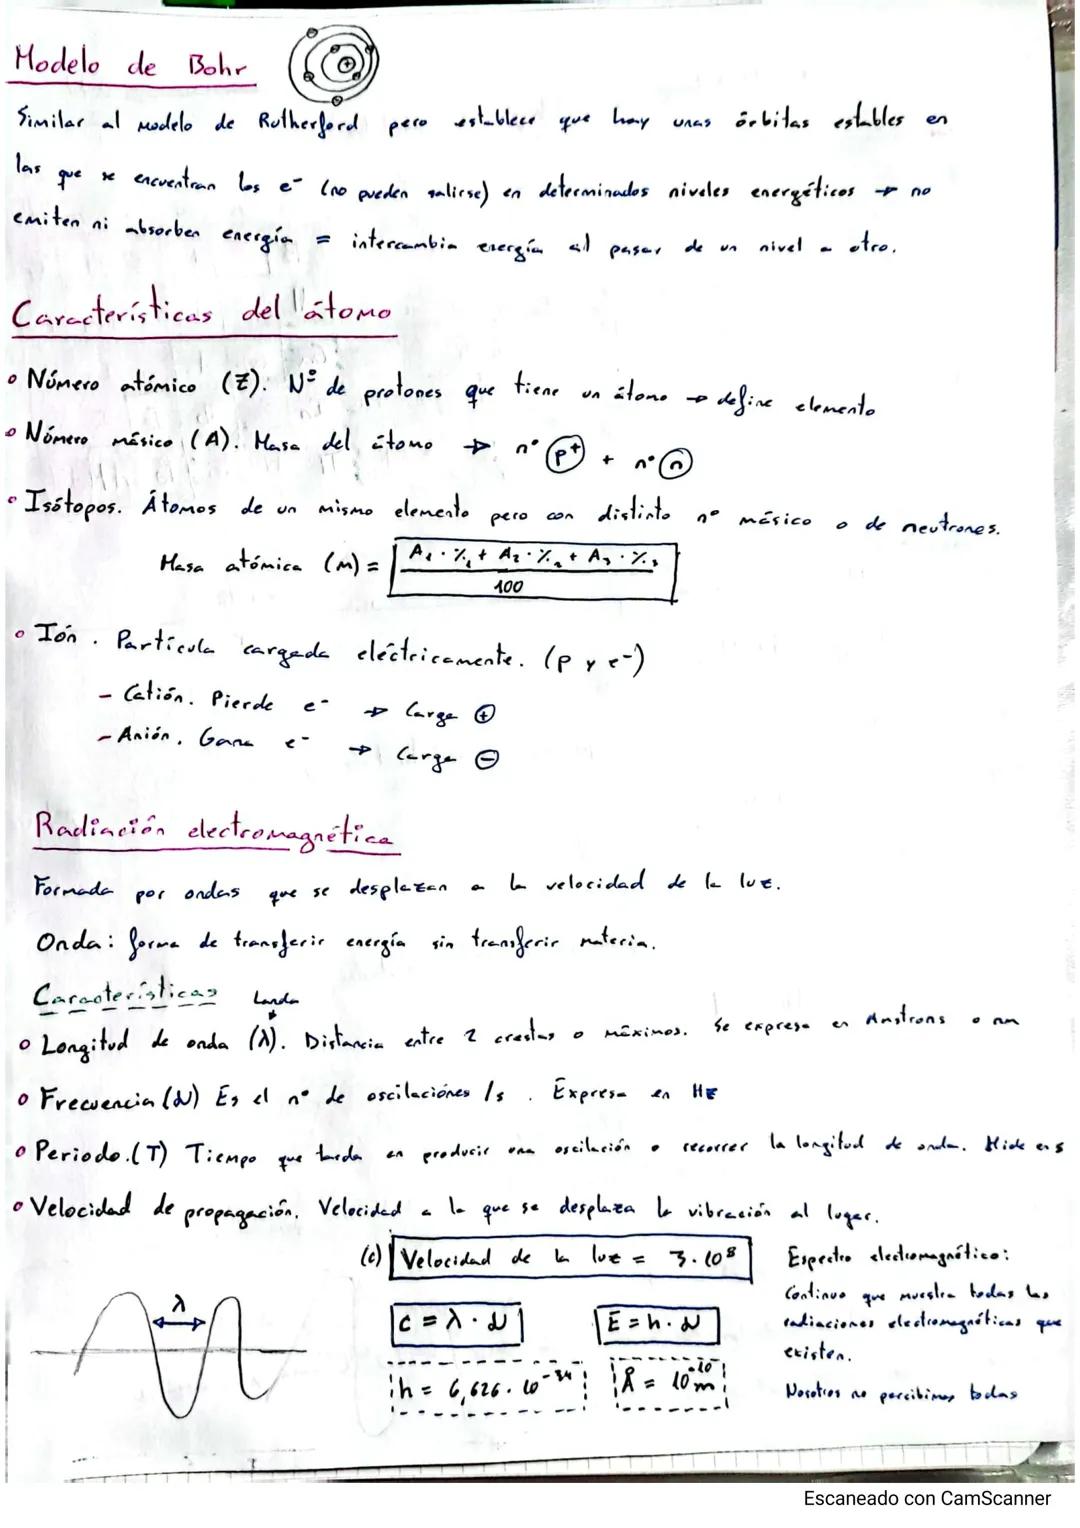 Modelo de Bohr
Similar al modelo de Rutherford pero establece que hay unas órbitas estables en
las que se encuentran los e⁻ (no pueden salirse) en determinados niveles energéticos → no
emiten ni absorben energía = intercambia energía al pasar de un nivel a otro.
Características del átomo
• Número atómico (Z). Nº de protones que tiene un átomo → define elemento
• Número másico (A). Masa del átomo → nº p⁺ + nº n
• Isótopos. Átomos de un mismo elemento pero con distinto nº másico o de neutrones.
Masa atómica (m) = A₁·%₁ + A₂·%₂ + A₃·%₃
100
• Ión. Partícula cargada eléctricamente. (p y e⁻)
- Catión. Pierde e⁻ → Carga ⊕
- Anión. Gana e⁻ → Carga ⊖
Radiación electromagnética
Formada por ondas que se desplazan a la velocidad de la luz.
Onda: forma de transferir energía sin transferir materia.
Características
Landa
• Longitud de onda (λ). Distancia entre 2 crestas o máximos. Se expresa en Anstrons o nm
• Frecuencia (ν) Es el nº de oscilaciones /s. Expresa en Hz
• Periodo.(T) Tiempo que tarda en producir una oscilación o recorrer la longitud de onda. Mide en s
• Velocidad de propagación. Velocidad a la que se desplaza la vibración al lugar.
(c) Velocidad de la luz = 3·10⁸
λ
c = λ · ν
E = h · ν
h = 6,626·10⁻³⁴
Å = 10⁻¹⁰ m
Espectro electromagnético:
Continuo que muestra todas las
radiaciones electromagnéticas que
existen.
Nosotros no percibimos todas
Escaneado con CamScanner